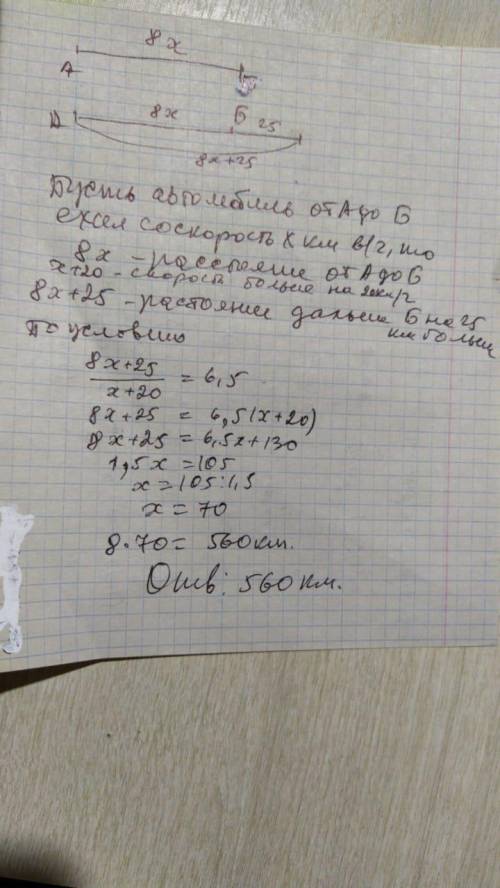 8х
А
Д 8х Б 25
8х+25
Пусть автомобиль от А до Б
ехал соскорость х км в/г, то
8х - рассыяние от А до Б
х+20 - скорость больше на 20км/г
8х+25 - растояние дальше Б на 25
км больше
По условию
8х+25
х+20 = 6,5
8х+25 = 6,5(х+20)
8х+25 = 6,5х+130
1,5х =105
х =105:1,5
х = 70
8·70= 560км.
Отв: 560км.